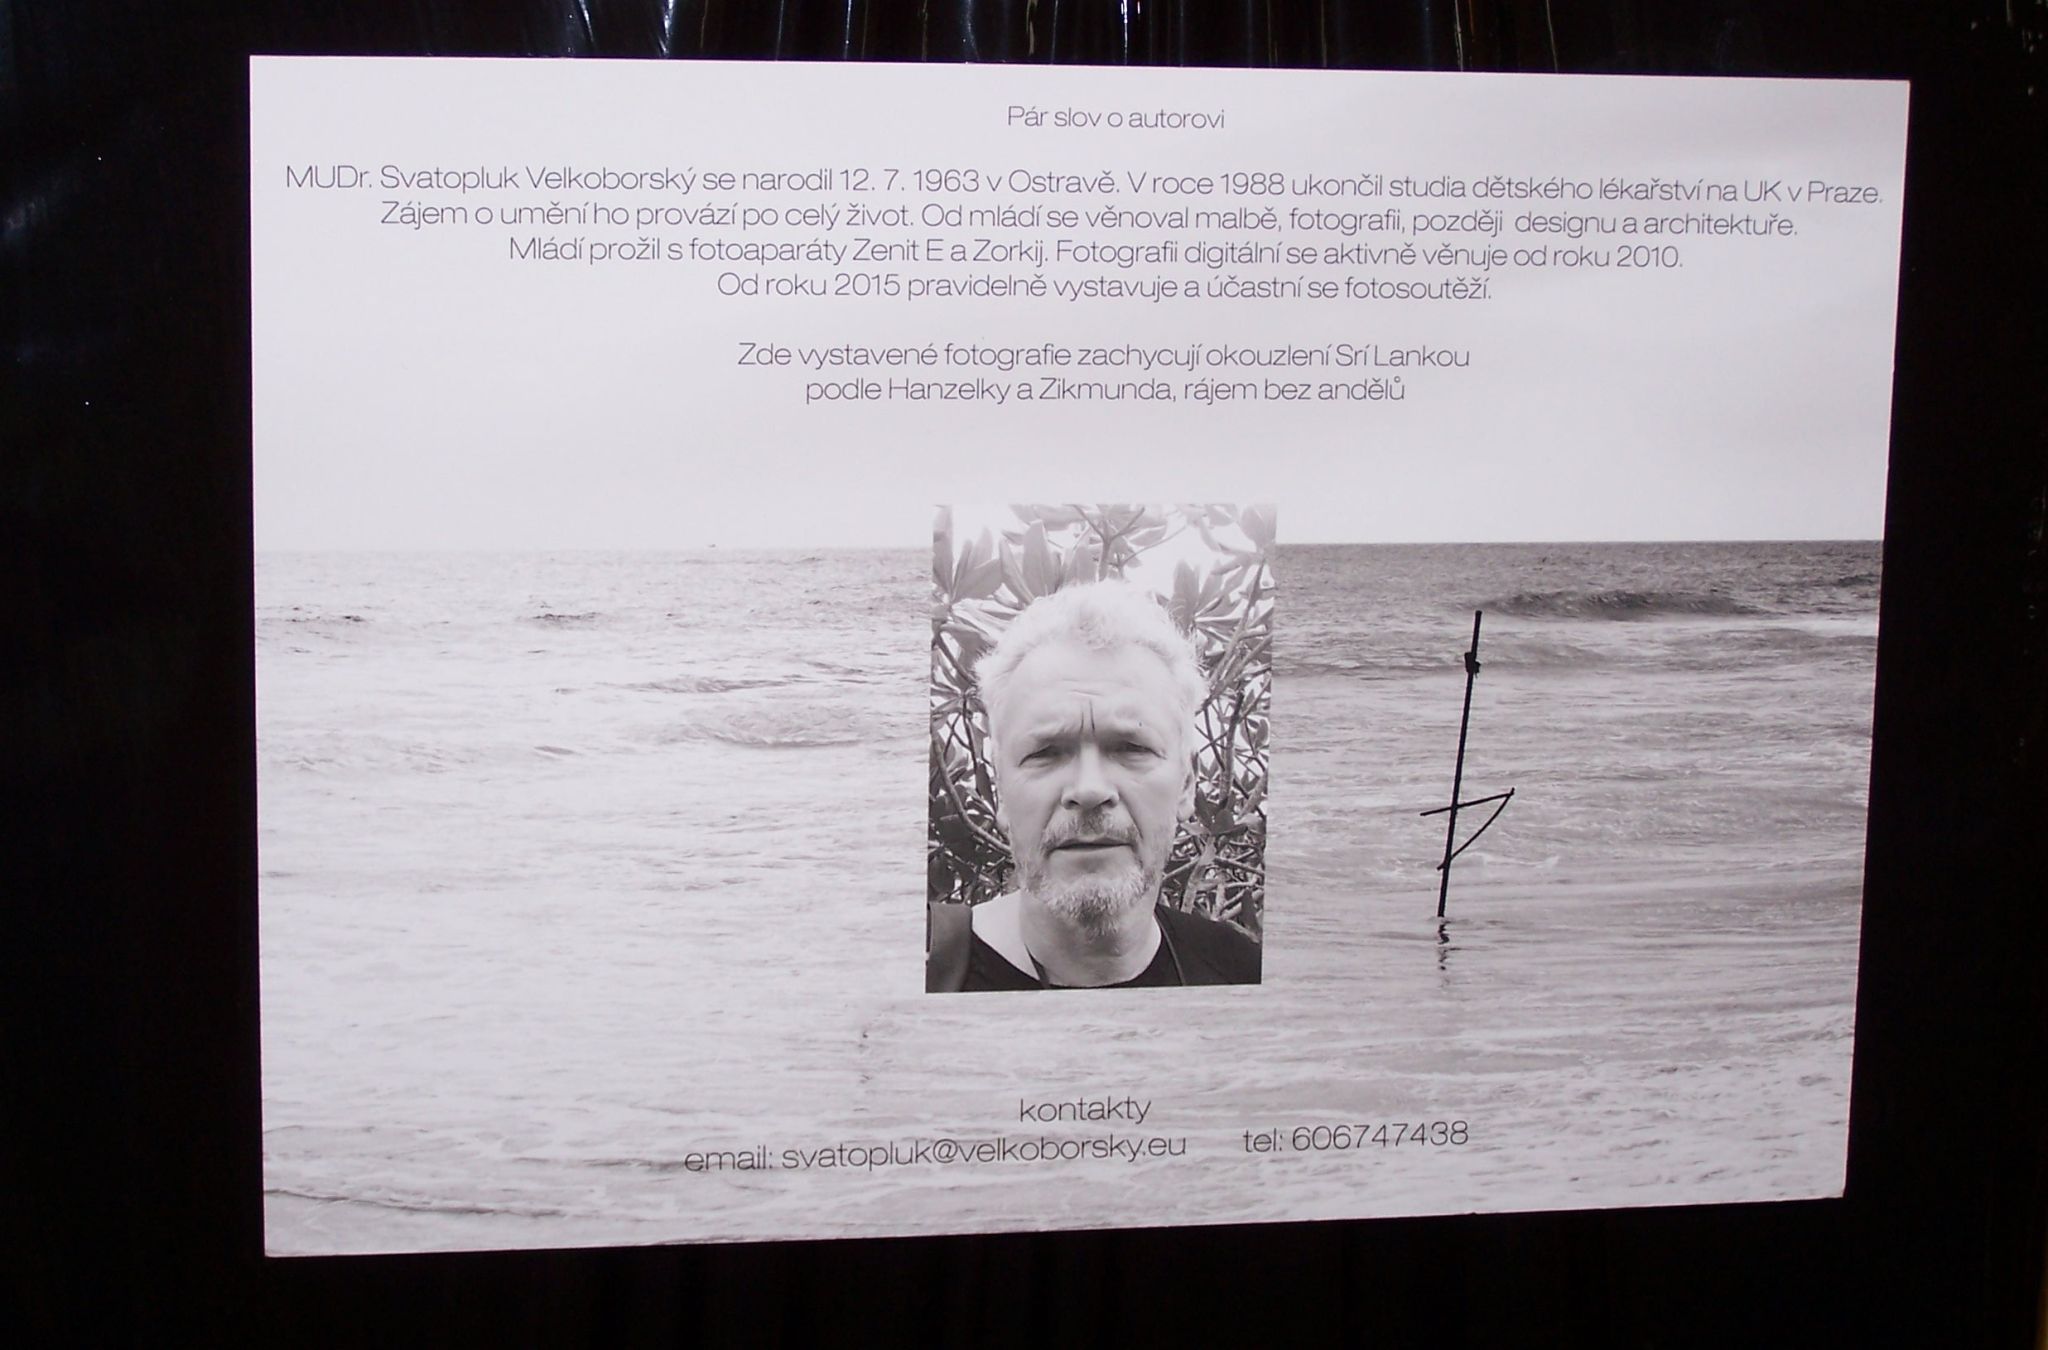 Pár slov o autorovi
MUDr. Svatopluk Velkoborský se narodil 12. 7. 1963 v Ostravě. V roce 1988 ukončil studia dětského lékařství na UK v Praze.
Zájem o umění ho provází po celý život. Od mládí se věnoval malbě, fotografii, později designu a architektuře.
Mládí prožil s fotoaparáty Zenit E a Zorkij. Fotografii digitální se aktivně věnuje od roku 2010.
Od roku 2015 pravidelně vystavuje a účastní se fotosoutěží.
Zde vystavené fotografie zachycují okouzlení Srí Lankou
podle Hanzelky a Zikmunda, rájem bez andělů
kontakty
email: svatopluk@velkoborsky.eu tel: 606747438